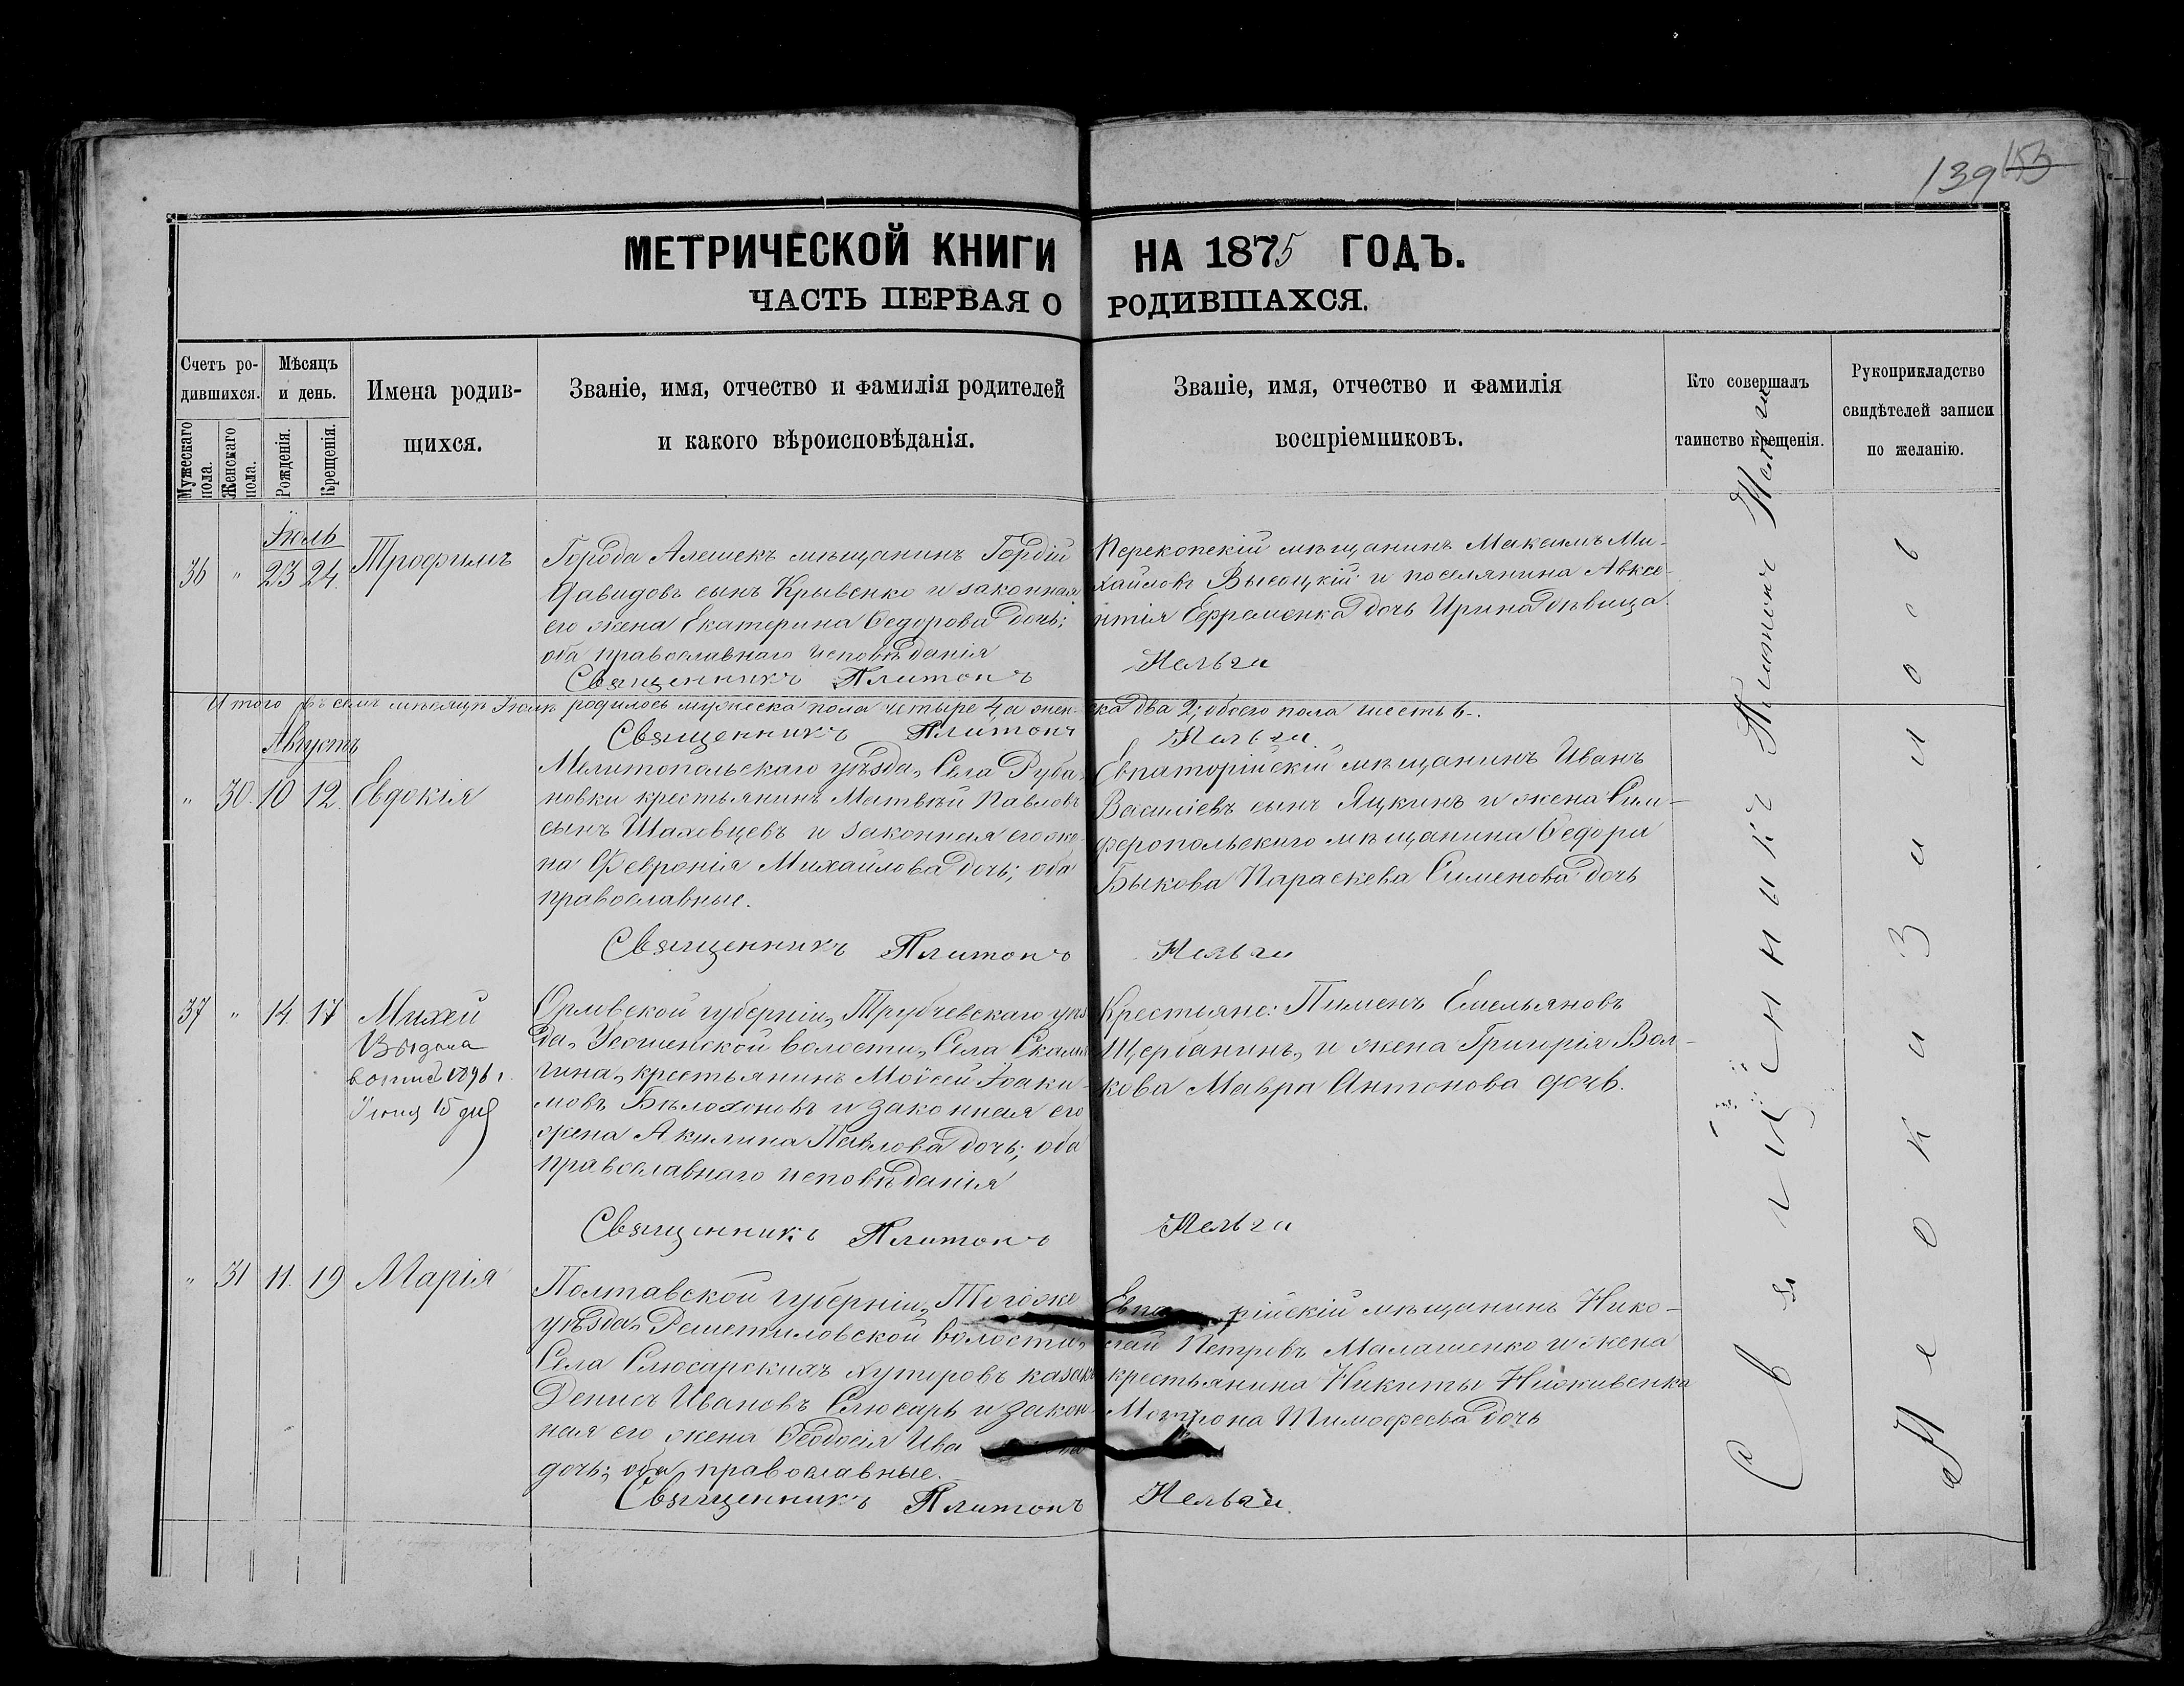 139 153
МЕТРИЧЕСКОЙ КНИГИ НА 1875 ГОДЪ.
ЧАСТЬ ПЕРВАЯ О РОДИВШАХСЯ.
Счетъ ро-
дившихся.
Мужескаго пола.
Женскаго пола.
Мѣсяцъ
и день.
Рожденія.
Крещенія.
Имена родив-
шихся.
Званіе, имя, отчество и фамилія родителей
и какого вѣроисповѣданія.
Званіе, имя, отчество и фамилія
воспріемниковъ.
Кто совершалъ
таинство крещенія.
Рукоприкладство
свидѣтелей записи
по желанію.
Іюль
36 " 23 24 Трофимъ
Города Алешекъ мѣщанинъ Гордій
Давидовъ сынъ Кривенко и законная
его жена Екатерина Ѳедорова дочь;
оба православнаго исповѣданія
Священникъ Платонъ
Перекопскій мѣщанинъ Максимъ Ми-
хайловъ Высоцкій и поселянина Авксе-
нтія Ефременка дочь Ирина дѣвица.
Итого въ семъ мѣсяцѣ Іюлѣ родилось мужеска пола четыре 4, а жен-
ска два 2; обоего пола шесть 6.
Священникъ Платонъ
Августъ
" 30. 10 12. Евдокія
Мелитопольскаго уѣзда, Села Руба-
новки крестьянинъ Матвѣй Павловъ
сынъ Шаховцевъ и законная его же-
на Февронія Михайлова дочь; оба
православные.
Священникъ Платонъ
Евпаторійскій мѣщанинъ Иванъ
Василіевъ сынъ Яцкинъ и жена Сим-
феропольскаго мѣщанина Ѳедора
Быкова Параскева Сименова дочь
37 " 14. 17 Михей
Выдана
1896 г.
Іюня 15 дня
Орловской губерніи, Трубчевскаго уѣз
да, волости, Села
крестьянинъ Моѵсей Іоаки-
мовъ и законная его
жена Акилина Павлова дочь; оба
православнаго исповѣданія
Священникъ Платонъ
Крестьяне: Пименъ Емельяновъ
Щербанинъ, и жена Григорія Вол-
кова Мавра Антонова дочь.
" 31 11. 19 Марія
Полтавской губерніи, Тогоже
уѣзда, Решетиловской волости,
Села Слюсарскихъ хуторовъ казакъ
Денисъ Ивановъ Слюсарь и закон-
ная его жена Ѳеодосія Ива
дочь; оба православные.
Священникъ Платонъ
Евпа рійскій мѣщанинъ Нико-
лай Петровъ Малашенко и жена
крестьянина Никиты
Матрона Тимофеева дочь
Священникъ Платонъ